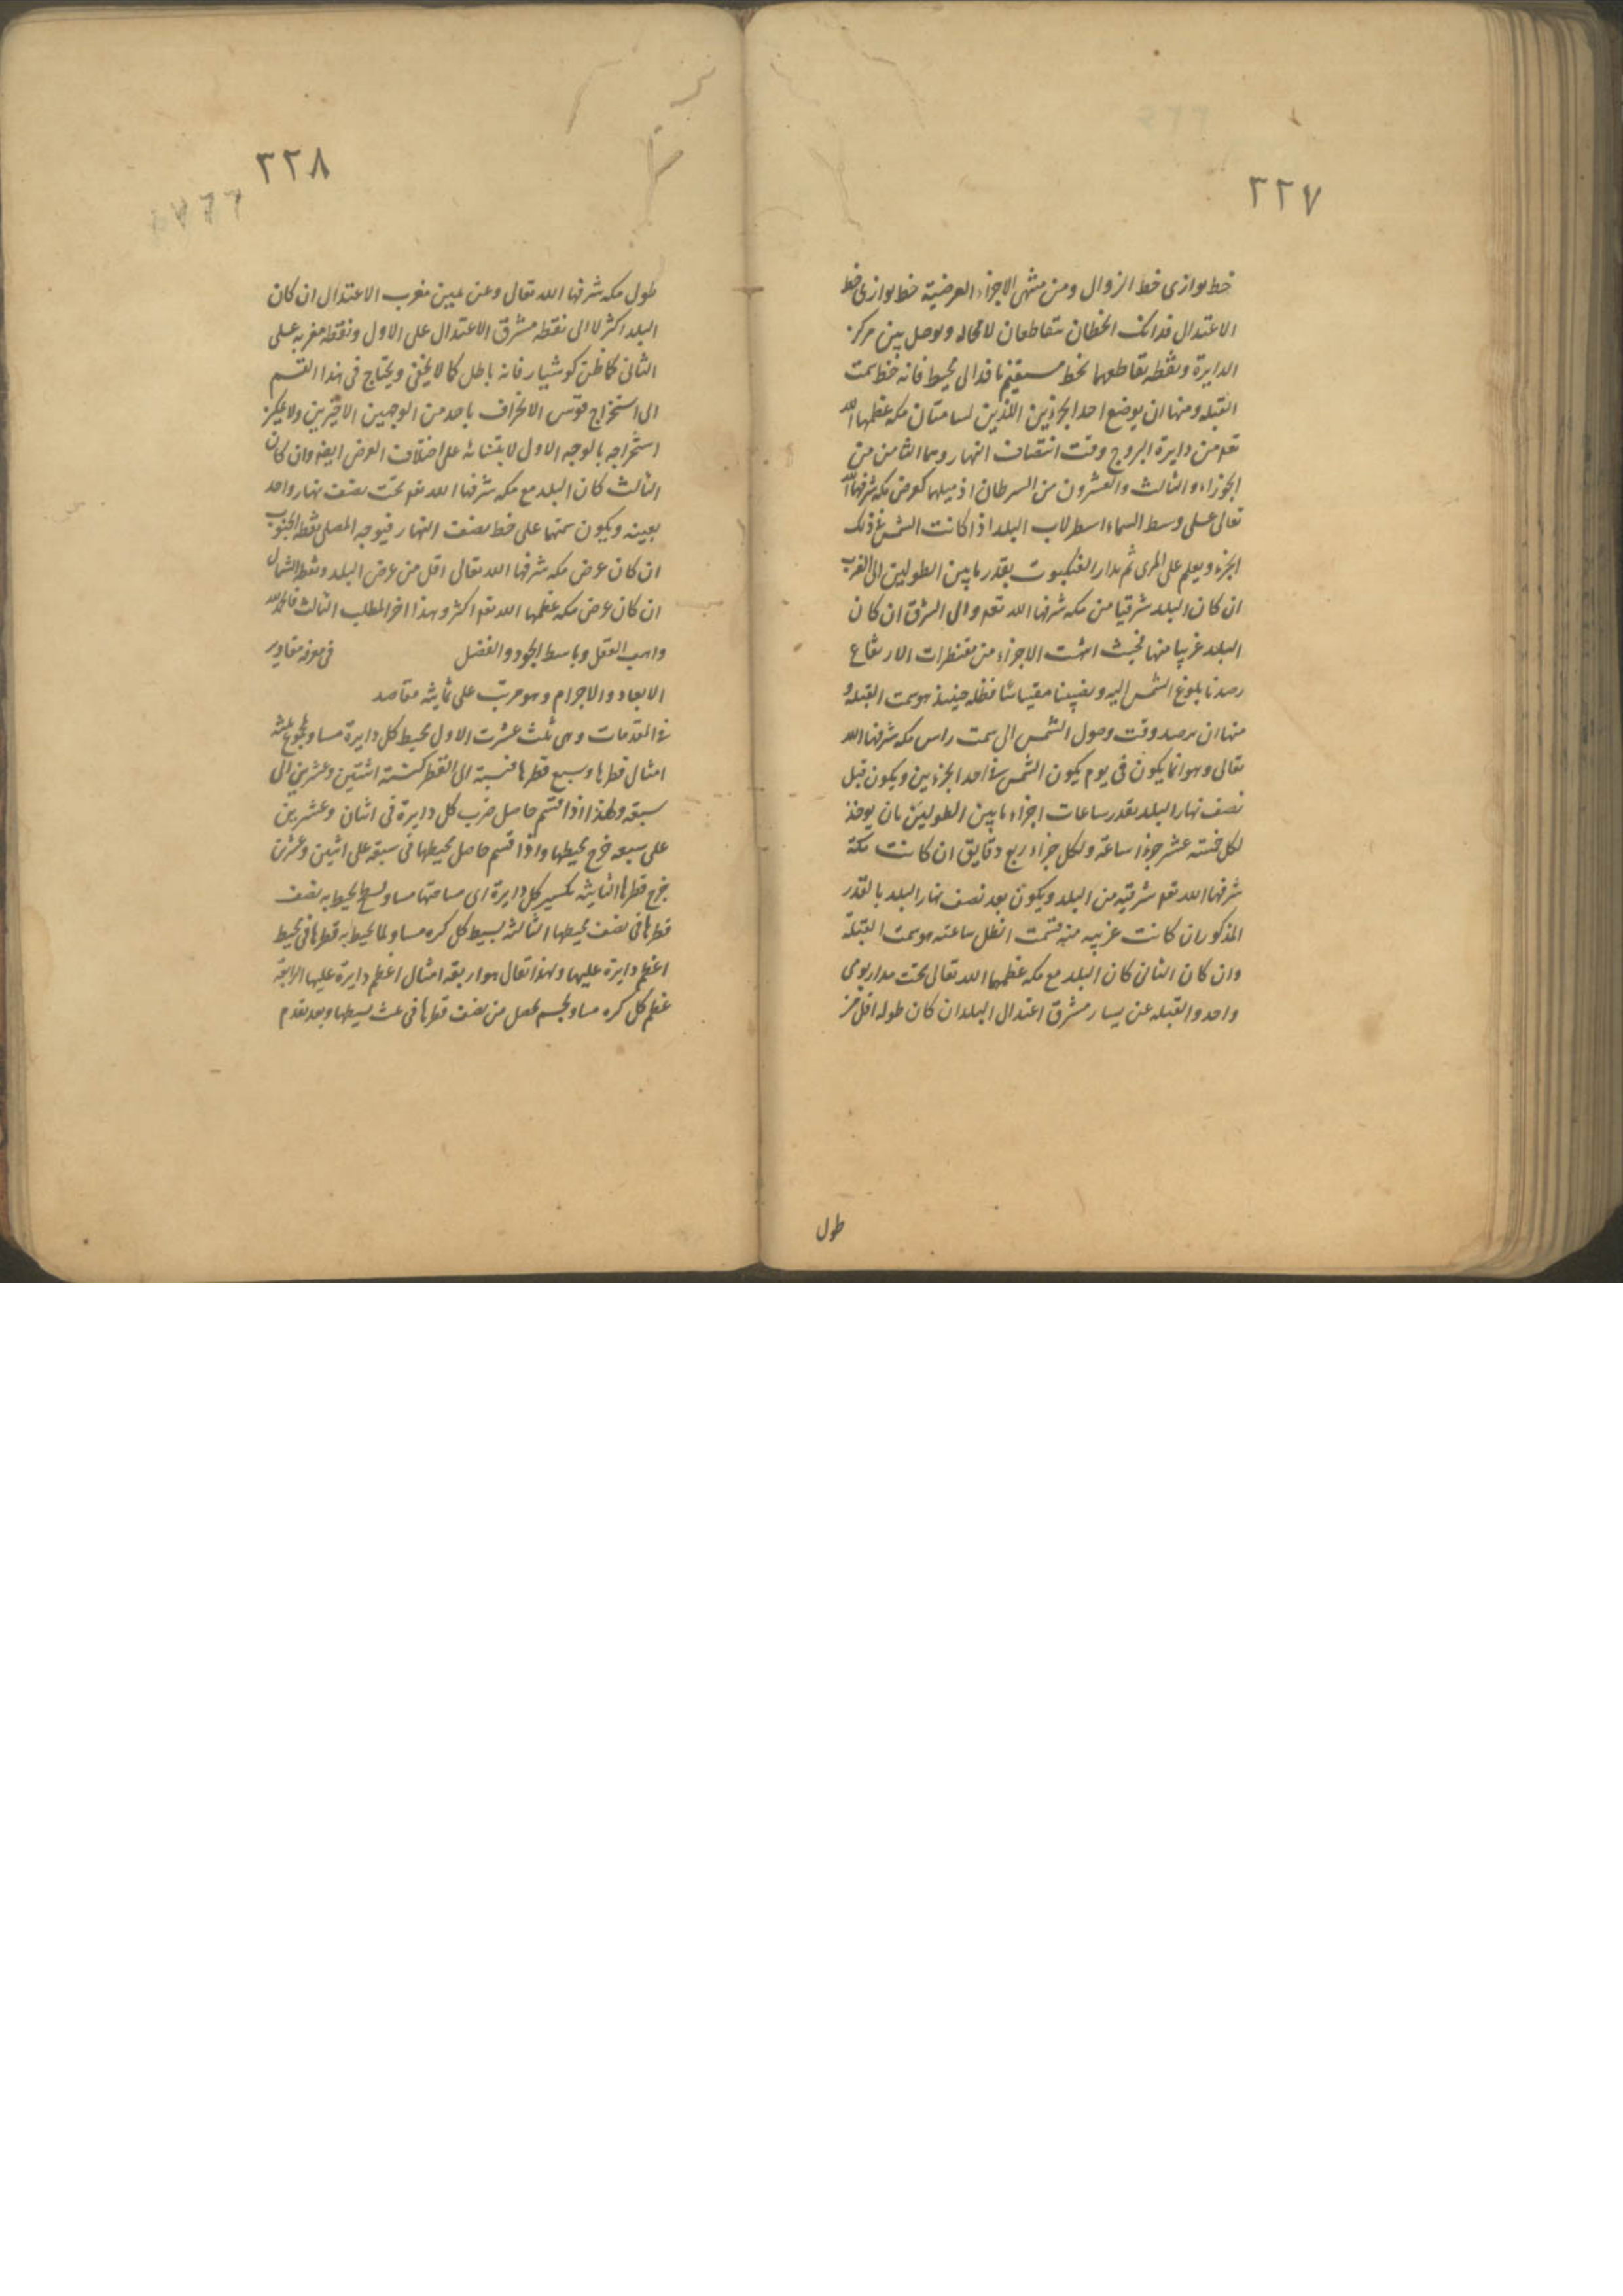 ٢٢٧
خط يوازى خط الزوال ومن منتهى الاجزاء العرضية خط يوازى خط
الاعتدال فذانك الخطان يتقاطعان لا محاله ويوصل بين مركز
الدايرة ونقطه تقاطعهما بخط مستقيم نافذ الى محيط فانه خط سمت
القبله ومنها ان يوضع احد الجزئين اللذين يسامتان مكه عظمها الله
تعه من دايرة البروج وقت انتصاف النهار وهما الثامن من
الجوزاء والثالث والعشرون من السرطان اذ ميلهما كعرض مكه شرفها الله
تعالى على وسط السماء اسطرلاب البلد اذا كانت الشمس فى ذلك
الجزء ويعلم على المرى ثم يدار العنكبوت بقدر ما بين الطولين الى الغرب
ان كان البلد شرقيا من مكه شرفها الله تعه والى الشرق ان كان
البلد غربيا منها فحيث انتهت الاجزاء من مقنطرات الارتفاع
رصدنا بلوغ الشمس اليه ونصبنا مقياسا فظله حينئذ هو سمت القبله و
منها ان يرصد وقت وصول الشمس الى سمت راس مكه شرفها الله
تعالى وهو انما يكون فى يوم يكون الشمس فى احد الجزئين ويكون قبل
نصف نهار البلد بقدر ساعات اجزاء ما بين الطولين بان يوخذ
لكل خمسة عشر جزءا ساعة ولكل جزء اربع دقايق ان كانت مكة
شرفها الله تعه شرقيه من البلد ويكون بعد نصف نهار البلد بالقدر
المذكور ان كانت غربيه منه فسمت الظل ساعته هو سمت القبلة
وان كان الثانى كان البلد مع مكه عظمها الله تعالى تحت مدار يومى
واحد والقبله عن يسار مشرق اعتدال البلد ان كان طوله اقل من
طول
٢٢٨
طول مكه شرفها الله تعالى وعن يمين مغرب الاعتدال ان كان
البلد اكثر لا الى نقطه مشرق الاعتدال على الاول ونقطه مغربه على
الثانى كما ظن كوشيار فانه باطل كما لا يخفى ويحتاج فى هذا القسم
الى استخراج قوس الانحراف باحد من الوجهين الاخيرين ولا يمكن
استخراجه بالوجه الاول لابتنائه على اختلاف العرض ايضه وان كان
الثالث كان البلد مع مكه شرفها الله تعه تحت نصف نهار واحد
بعينه ويكون سمتها على خط نصف النهار فيوجه المصلى نقطه الجنوب
ان كان عرض مكه شرفها الله تعالى اقل من عرض البلد ونقطه الشمال
ان كان عرض مكه عظمها الله تعه اكثر وهذا اخر المطلب الثالث فالحمد لله
واهب العقل وباسط الجود والفضل فى معرفه مقادير
الابعاد والاجرام وهو مرتب على ثمانية مقاصد
فى المقدمات وهى ثلث عشرت الاول محيط كل دايرة مساو لمجموع ثلثة
امثال قطرها وسبع قطرها فنسبة الى القطر كنسبة اثنتين وعشرين الى
سبعة ولهذا اذا قسم حاصل ضرب كل دايرة فى اثنان وعشرين
على سبعه خرج محيطها واذا قسم حاصل محيطها فى سبعة على اثنين وعشرين
خرج قطرها الثانية تكسير كل دايرة اى مساحتها مساو لسطح يحيط به نصف
قطرها فى نصف محيطها الثالثة بسيط كل كره مساو لما يحيط به قطرها فى محيط
اعظم دايرة عليها ولهذا يقال هو اربعة امثال اعظم دايرة عليها الرابعة
عظم كل كره مساو لجسم يحصل من نصف قطرها فى ثلث بسيطها وبعد تقدم